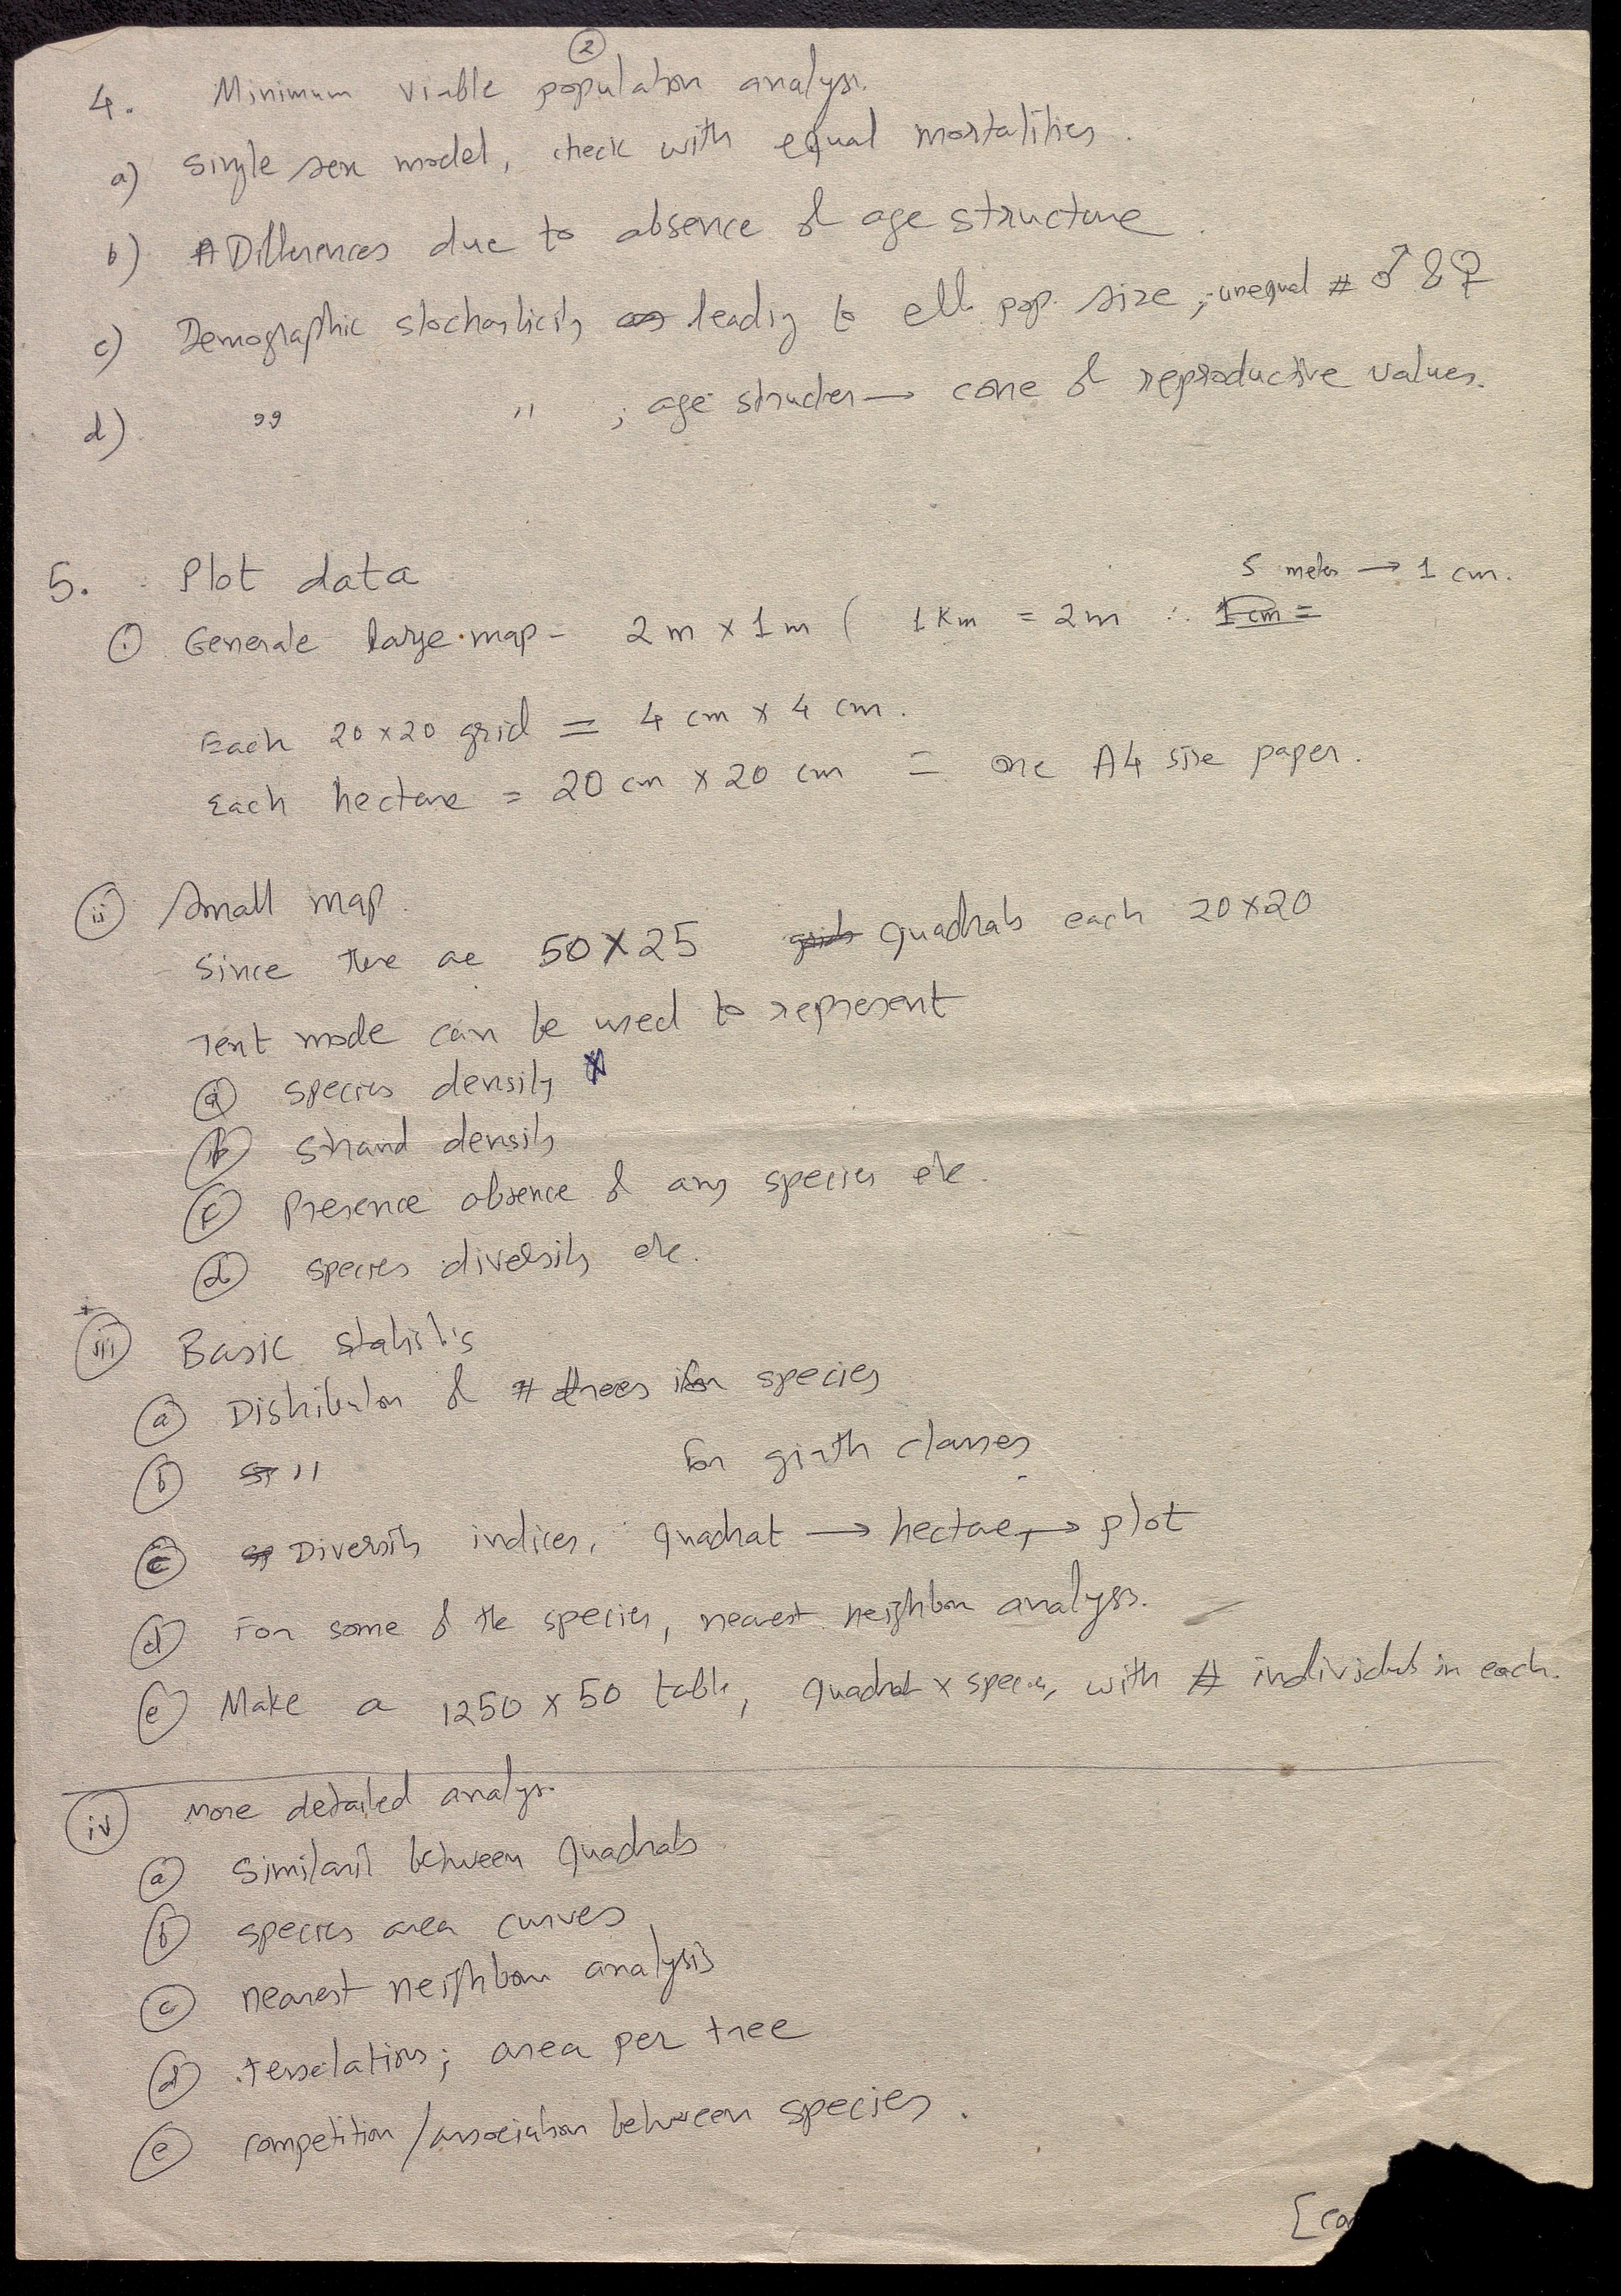 2
4. Minimum viable population analys.
a) Single sex model, check with equal mortalities.
b) Differences due to absence of age structure.
c) Demographic stochasticity leading to eff. pop. size, unequal # ♂ & ♀
d) " " ; age structure → cone of reproductive values.
5. Plot data
5 meter → 1 cm.
i Generate large map - 2m x 1m ( 1 Km = 2m ∴ 1 cm =
Each 20 x 20 grid = 4 cm x 4 cm.
Each hectare = 20 cm x 20 cm = one A4 size paper.
ii Small map.
Since there are 50 X 25 grids quadrats each 20 X 20
Text mode can be used to represent
a species density x
b stand density
c Presence absence of any species etc.
d species diversity etc.
iii Basic statistics
a Distribution of # trees for species
b " for girth classes
c Diversity indices, quadrat → hectare, → plot
d For some of the species, nearest neighbour analysis.
e Make a 1250 x 50 table, quadrat x species, with # individuals in each.
iv More detailed analys.
a Similarit between quadrats
b species area curves
c nearest neighbour analysis
d tesselations; area per tree
e competition / association between species.